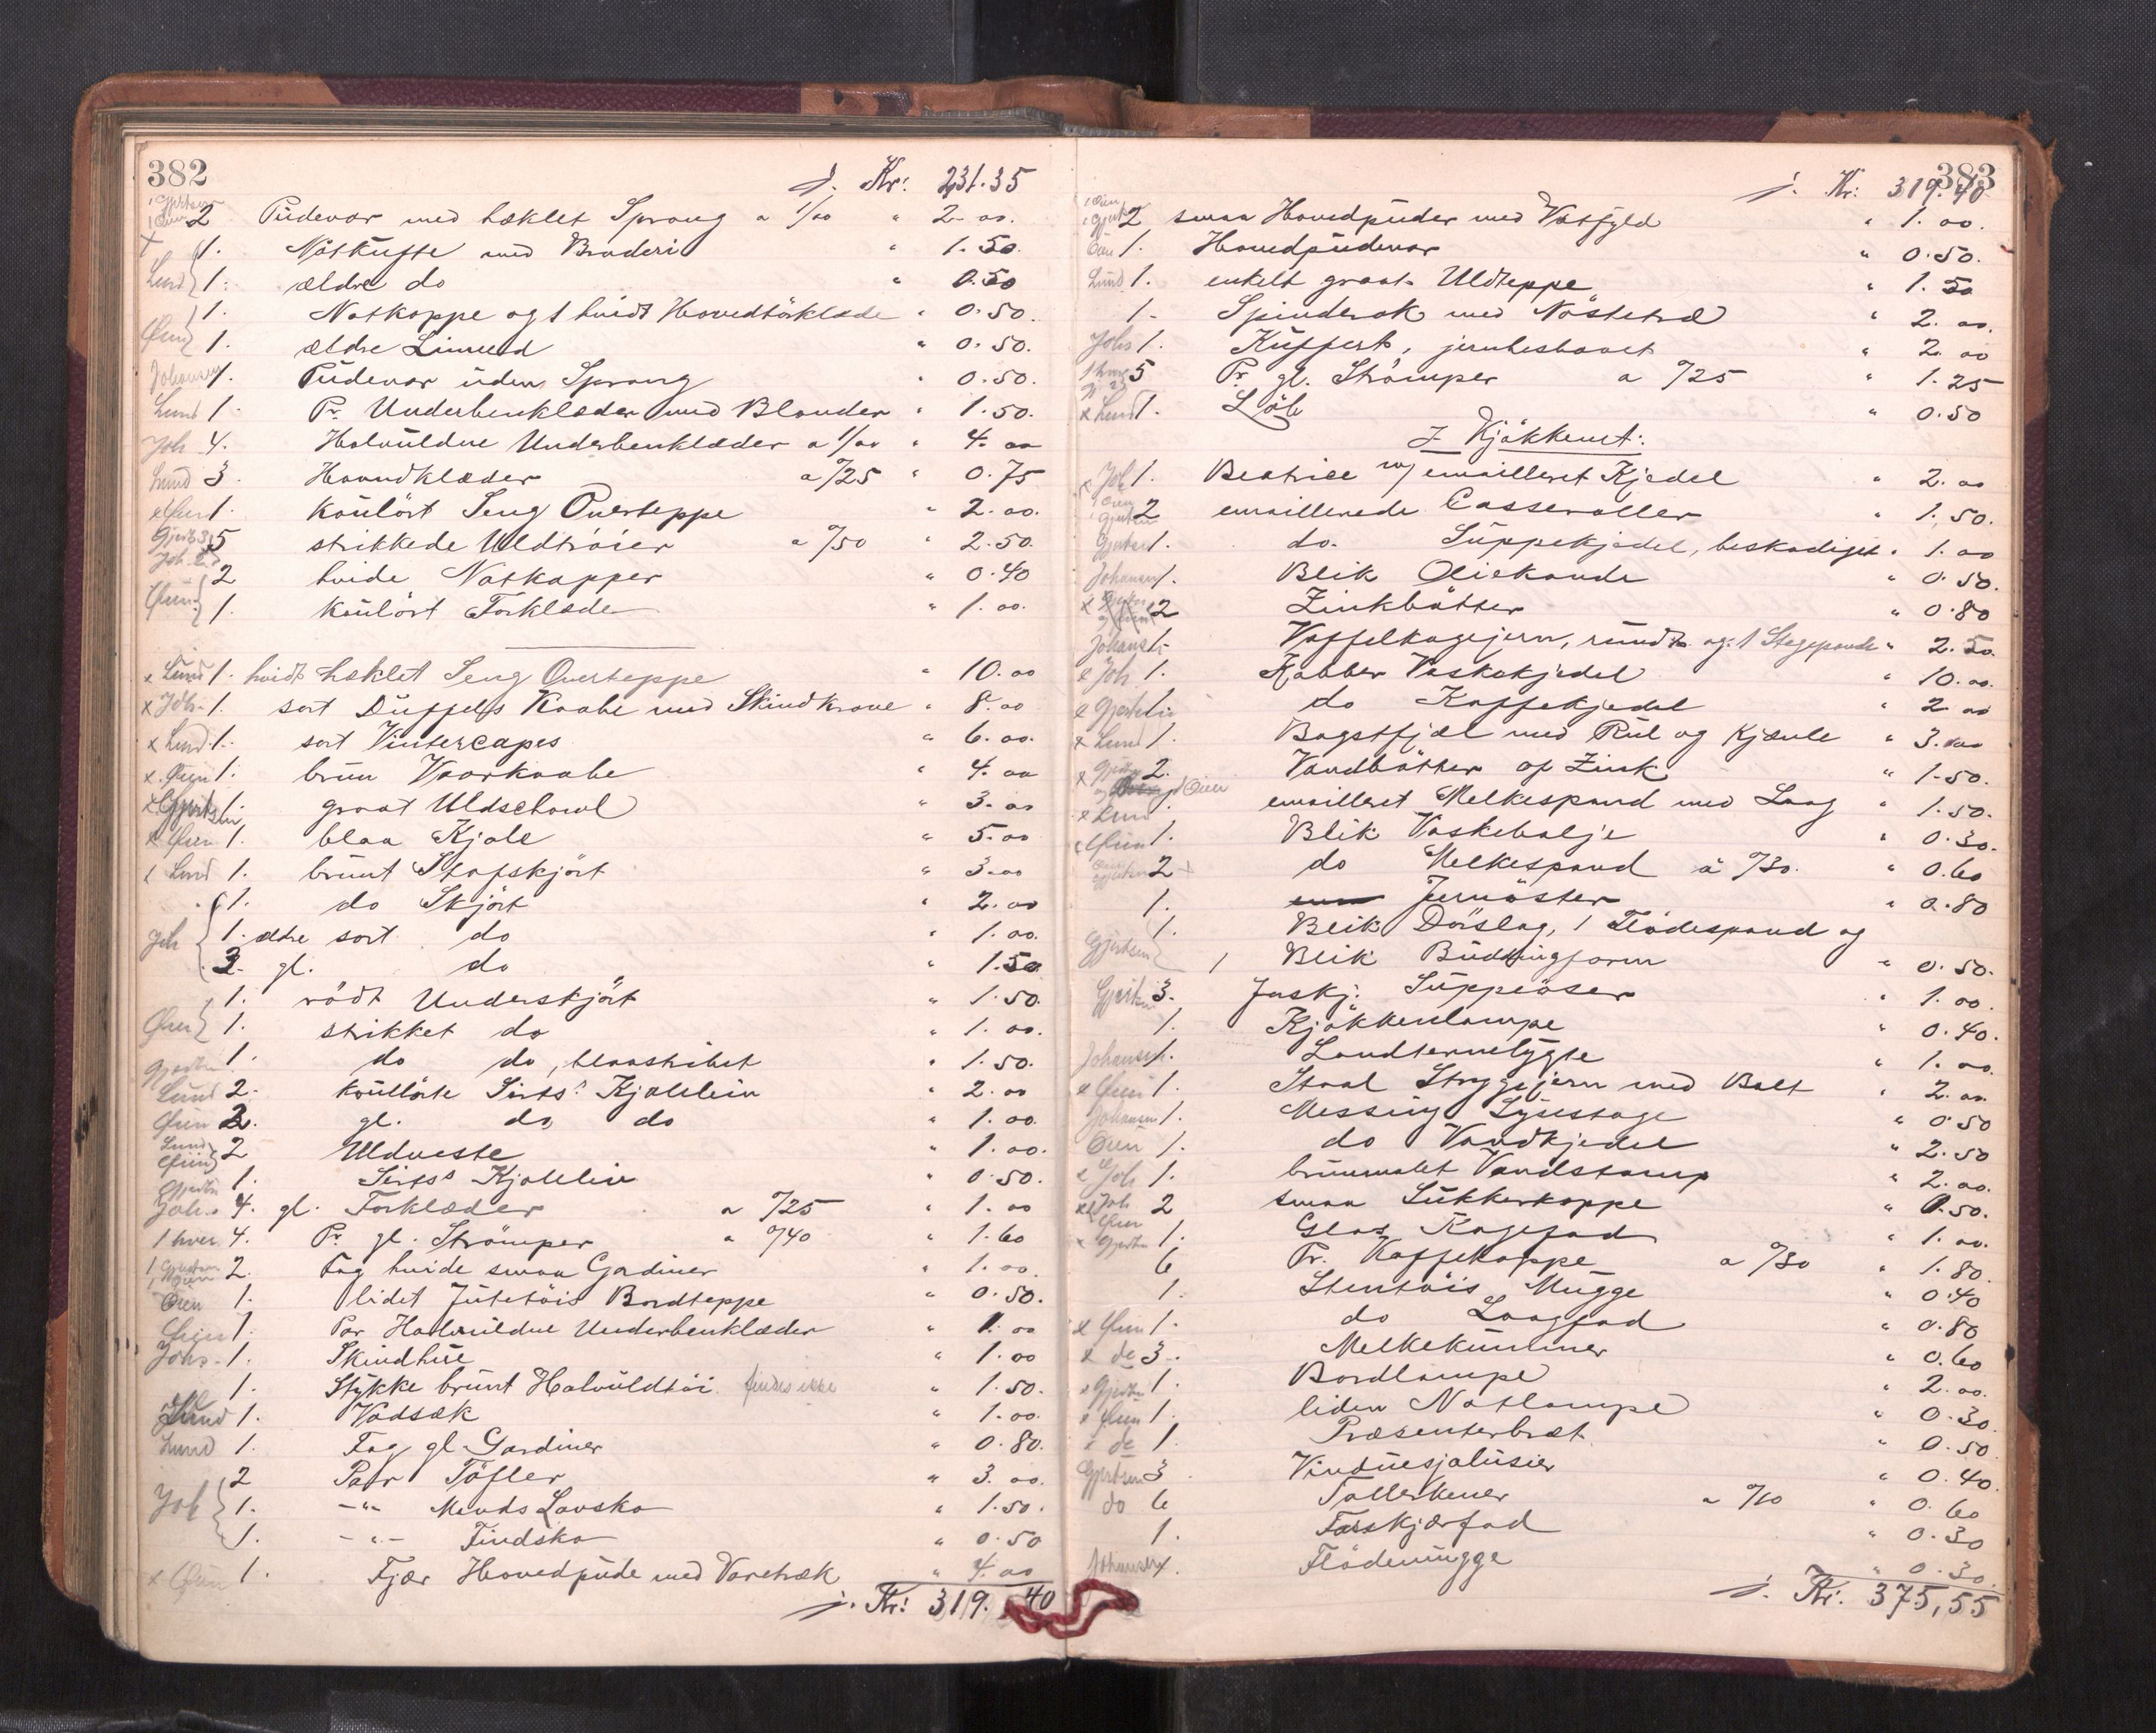 382
j. Kr: 231.35
1 Gjertsen
1 Øien 2 Pudevar med heklet Sprang a 1/00 " 2.00.
+ 1. Natkufte med Broderi " 1.50.
Lund 1. ældre do " 0.50
1. Natkappe og 1 hvidt Hovedtörklæde " 0.50.
Øien 1. ældre Linned " 0.50.
Johansen 1. Pudevar uden Sprang " 0.50.
Lund 1. Pr. Underbenklæder med Blonder " 1.50.
Joh 4. Halvuldne Underbenklæder a 1/00 " 4.00
Lund 3. Haandklæder a 0/25 " 0.75
x Øien 1. koulört Seng Overteppe " 2.00.
Gjerts 3
Joh 2 5 strikkede Uldtröier a 0/50 " 2.50.
2 hvide Natkapper " 0.40
Øien 1. koulört Forklæde " 1.00.
x Lund 1. hvidt heklet Seng Overteppe " 10.00
x Joh. 1. sort Düffels Kaabe med Skindkrave " 8.00
x Lund. 1. sort Vintercapes " 6.00.
x Øien 1. brun Vaarkaabe " 4.00
x Gjertsen 1. graat Uldschawl " 3.00
x Øien 1. blaa Kjole " 5.00
x Lund 1. brunt Stofskjört " 3.00
1. do Skjört " 2.00
Joh 1. ældre sort do " 1.00.
3. gl. do " 1.50
1. rödt Underskjört " 1.50.
Øien 1. strikket do " 1.00.
Gjertsen 1. do do, blaastribet " 1.50.
Lund 2. koullörte Sirts' Kjoleliv " 2.00
Øien 2. gl. do do " 1.00.
Lund
Øien 2 Uldveste " 1.00.
Gjertsen 1. Sirts' Kjoleliv " 0.50.
Joh. 4. gl. Forklæder a 0/25 " 1.00
1 hver 4. Pr. gl. Strömper a 0/40 " 1.60
1 Gjertsen
1 Øien 2. Fag hvide smaa Gardiner " 1.00.
Øien 1. lidet Jutetöis Bordteppe " 0.50.
Øien 1. Par Halvuldne Underbenklæder " 1.00
Johs. 1. Skindhue " 1.00
1. Stykke brunt Halvuldtöi findes ikke " 1.50.
Lund 1. Vadsæk " 1.00.
Lund 1. Fag gl. Gardiner " 0.80.
2 Par Töfler " 3.00.
Joh 1. -"- Mands Lavsko " 1.50.
1. -"- Findsko " 0.50
x Øien 1. Fjær Hovedpude med Varetræk " 4.00
j. Kr: 319.40
383
j. Kr: 319.40
1 Øien
1 Gjert 2 smaa Hovedpuder med Vatfyld " 1.00.
Øien 1. Hovedpudevar " 0.50.
Lund 1. enkelt graat Uldteppe " 1.50
1. Spinderok med Nöstetræ " 2.00.
Johs 1. Kuffert, jernbeslaaet " 2.00
1 hver 5 Pr. gl. Strömper a 0/25 " 1.25
x Lund 1. Löb " 0.50
I Kjökkenet:
x Joh 1. Beatrice m/ emailleret Kjedel " 2.00
1 Øien
1 Gjertsen 2 emaillerede Casseroller " 1.50.
Gjertsen 1. do. Suppekjedel, beskadiget " 1.00
Johansen 1. Blik Oliekande " 0.50.
x 2 Zinkbötter " 0.80
Johans 1. Vaffelkagejern, rundt og 1 Stegepande " 2.50.
x Joh. 1. Kobber Vaskekjedel " 10.00.
x Gjertsen 1. do Kaffekjedel " 2.00
x Lund 1. Bagstfjæl med Rul og Kjævle " 3.00
x Gjertsen 2. Vandbötter af Zink " 1.50.
og Øien
x Lund emailleret Melkespand med Laag " 1.50.
x Øien 1. Blik Vaskebalje " 0.30.
Øien
Gjertsen 2 do Melkespand a 0/30. " 0.60
1. Jernöster " 0.80
1. Blik Dörslag, 1 Flödespand og
Gjertsen 1 Blik Buddingform " 0.50.
Gjertsen 3. Jnskj: Suppeöser " 1.00.
1. Kjökkenlampe " 0.40.
Johansen 1. Landternelygte " 1.00
x Øien 1. Staal Strygejern med Bolt " 2.00.
Johansen 1. Messing Lysestage " 0.50
Øien 1. do Vandkjedel " 2.50
x Joh 1. brunmalet Vandstamp " 2.00.
x Joh
Øien 2 smaa Sukkerkoppe " 0.50.
x Gjertsen 1. Glas Kagefad " 1.00.
6 Pr. Kaffekoppe a 0/30 " 1.80.
1. Stentöis Mugge " 0.40
x Øien 1. do Laagfad " 0.80
x do 3. Melkekummer " 0.60
x Gjertsen 1. Bordlampe " 2.00.
x Øien 1. liden Natlampe " 0.30
x do 1. Præsenterbræt " 0.50
Gjertsen 3 Vinduesjalusier " 0.40.
do 6 Tallerkener a 0/10 " 0.60
1. Forskjærfad " 0.30
Johansen 1. Flödemugge " 0.30.
j. Kr: 375,55